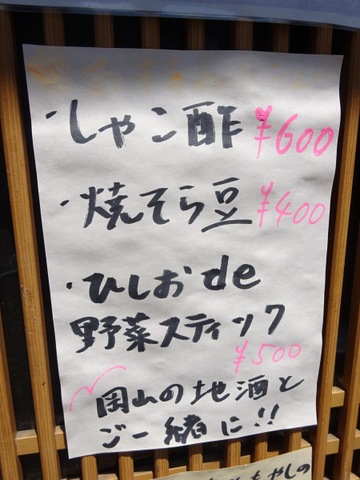 ・しゃこ酢 ¥600
・焼そら豆 ¥400
・ひしおde
野菜スティック
¥500
岡山の地酒と
ご一緒に!!